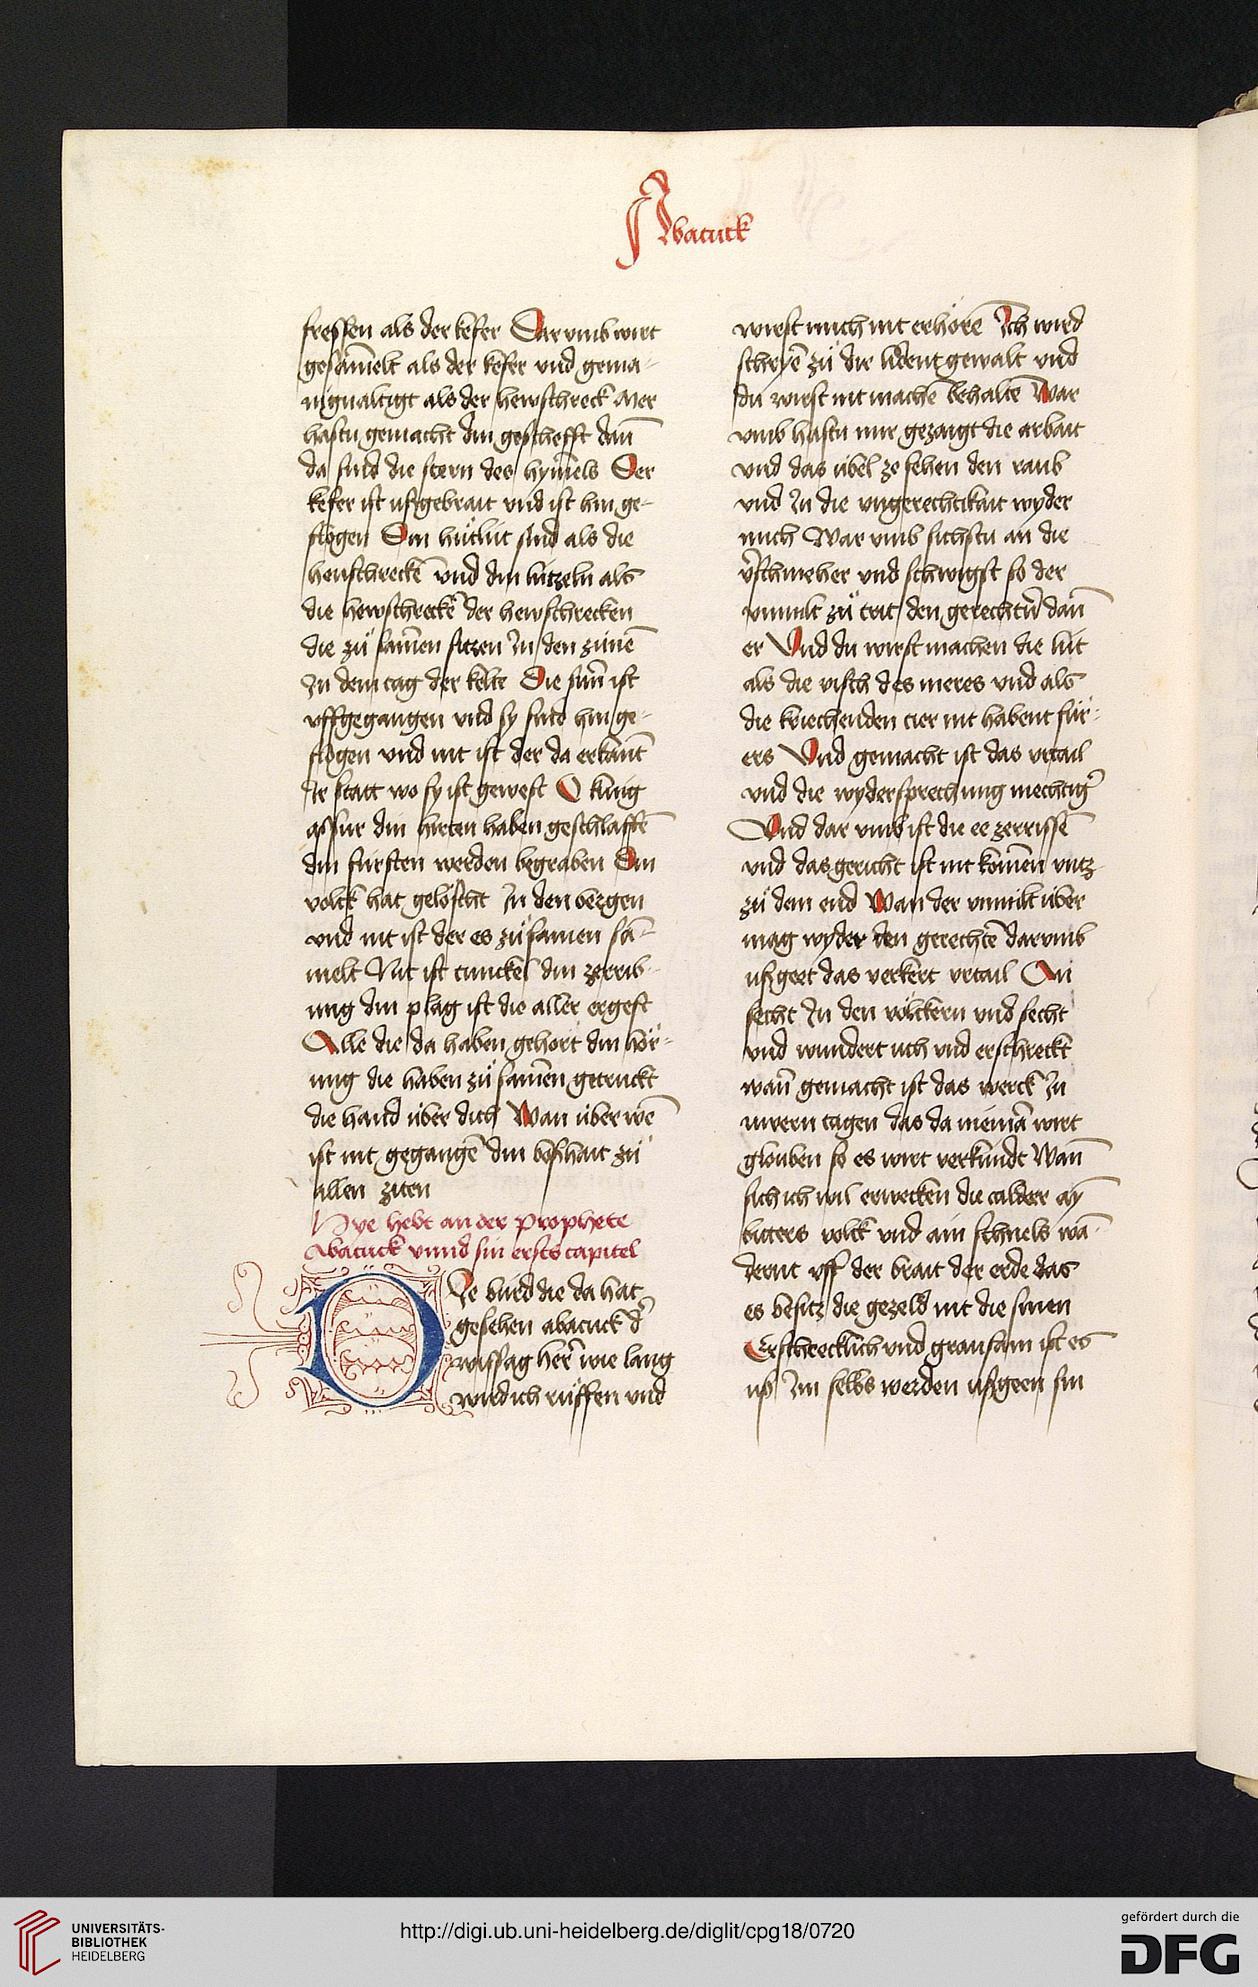 Abacuck
fressen als der kefer Dar vmb wirt
gesam̄elt als der kefer vnd gema-
nigualtigt als der hewschreck Mer
hastu gemacht din geschefft dan̄
da sind die stern des hym̄els Der
kefer ist vßgebrait vnd ist hin ge-
flogen Din hu̍tlut sind als die
heuschreckē vnd din lutzeln als
die hewschreckē der hewschrecken
die zu̍ samen sitzen In den zu̍nē
In dem tag der kelte Die sun̄ ist
vffgegangen vnd sy sind hin ge-
flogen vnd nit ist der da erkant
Ir statt wo sy ist gewest O kunig
assur din hirten haben geschlaffē
din fursten werden begraben Din
volck hat gelöscht In den bergen
vnd nit ist der es zu̍samen sā-
melt Nit ist tunckel din zerrib-
ung din plag ist die aller ergest
Alle die da haben gehort din hör-
ung die haben zu̍ samen getruckt
die hand über dich Wan über wē
ist nit gegangē din boßhait zu̍
allen ziten
Hye hebt an der prophete
Abacuck vnnd sin erst capitel
DIe burd die da hat
gesehen abacuck d'
wissag her̄ wie lang
wird ich ru̍ffen vnd
wirst mich nit erhörē Ich wird
schryē zu̍ dir lident gewalt vnd
du wirst nit machē behaltē War
vmb hastu mir gezaigt die arbait
vnd das übel ze sehen den raub
vnd In die vngerechtikait wyder
mich War vmb sichstu an die
v'schmeher vnd schwigst so der
vnmilt zu̍ trit den gerechtn̄ dan̄
er Vnd du wirst machen die lüt
als die visch des meres vnd als
die kriechenden tier nit habent für-
ers Vnd gemacht ist das vrtail
vnd die wydersprechung mechtig'
Vnd dar vmb ist die ee zerrissē
vnd das gericht ist nit komen vntz
zu̍ dem end Wan der vnmilt über
mag wyder den gerechtē darvmb
vßgeet das verkert vrtail An
secht In den völckern vnd secht
vnd wundert uch vnd erschreckt
wan̄ gemacht ist das werck In
uwern tagen das da niemā wirt
glouben so es wirt verkundt Wan̄
sich ich wil erwecken die caldeer ay̅
bitters volck vnd ain schnels wā-
dernt vff der brait der erde das
es besitz die gezeld nit die sinen
Erschrecklich vnd grausam ist es
uß Im selbs werden ußgeen sin
UNIVERSITÄTS-
BIBLIOTHEK
HEIDELBERG
http://digi.ub.uni-heidelberg.de/diglit/cpg18/0720
gefördert durch die
DFG